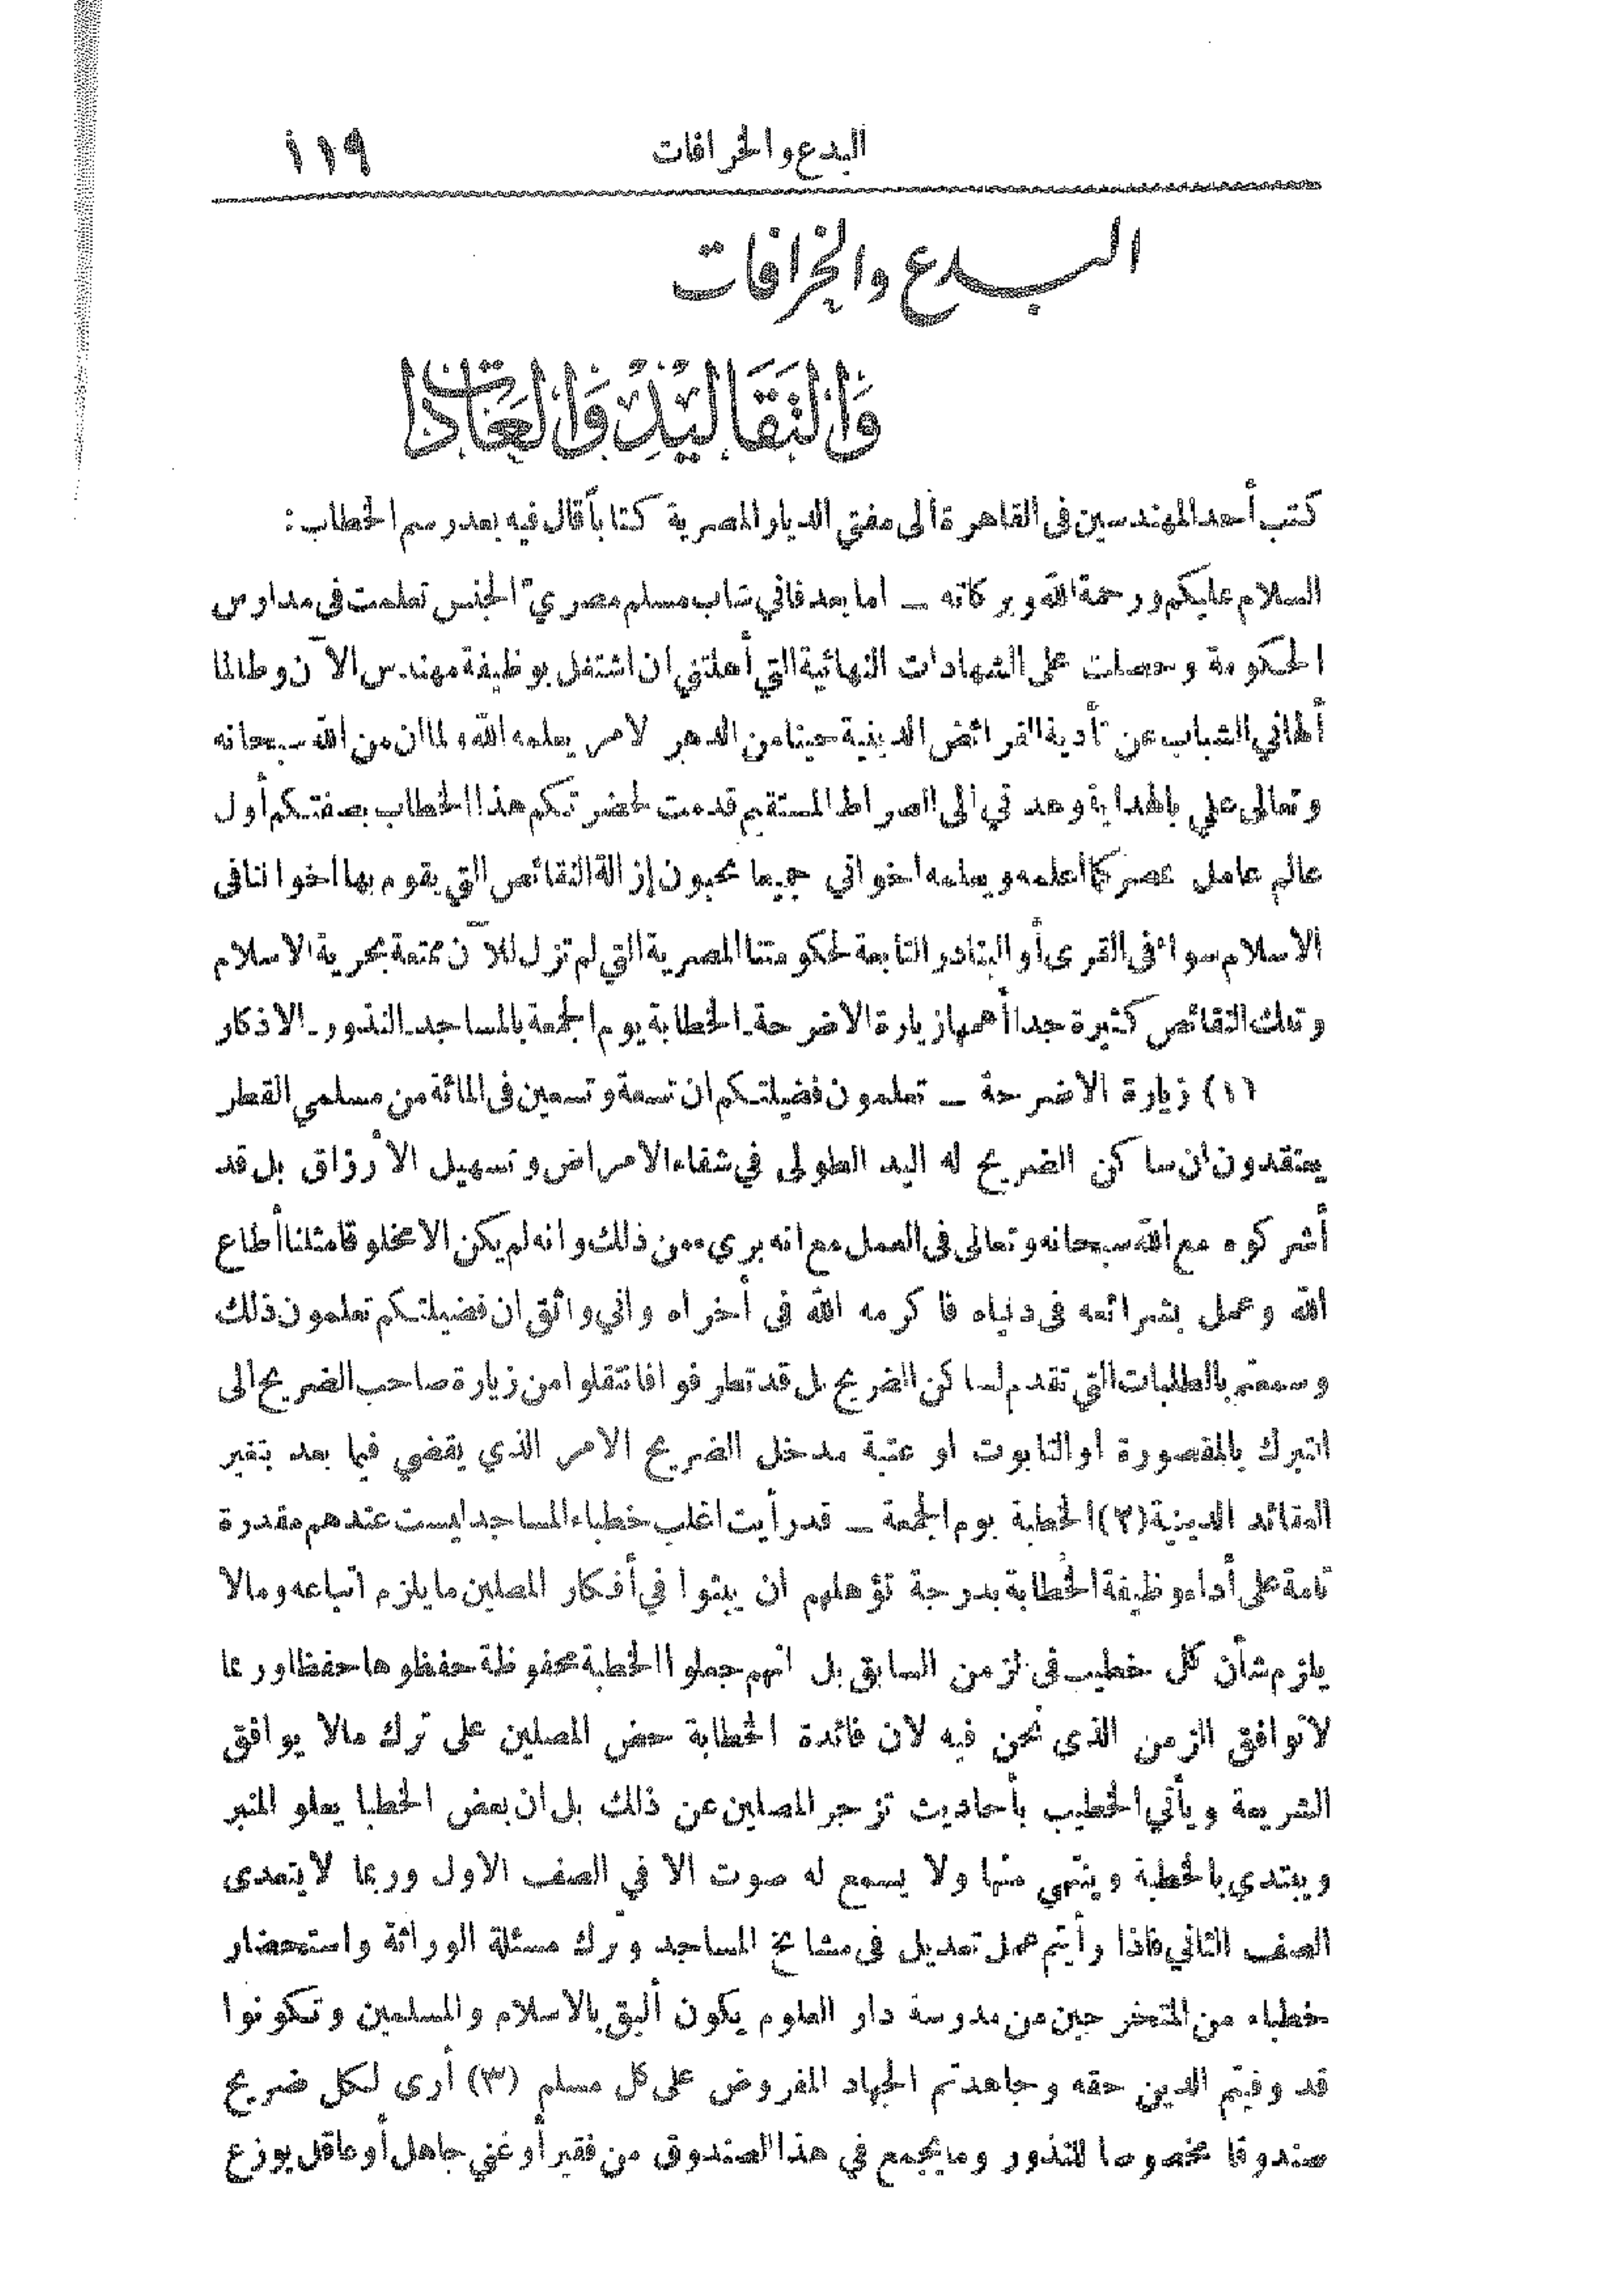 البدع والخرافات ١١٩
البدع والخرافات
والتقاليد والعادات
كتب أحد المهندسين فى القاهرة الى مفتي الديار المصرية كتاباً قال فيه بعد رسم الخطاب :
السلام عليكم ورحمة الله وبركاته — اما بعد فاني شاب مسلم مصري الجنس تعلمت فى مدارس
الحكومة وحصلت على الشهادات النهائية التي أهلتني ان اشتغل بوظيفة مهندس الآن وطالما
ألهاني الشباب عن تأدية الفرائض الدينية حينا من الدهر لامر يعلمه الله ولما ان من الله سبحانه
وتعالى علي بالهداية وهداني الى الصراط المستقيم قدمت لحضرتكم هذا الخطاب بصفتكم أول
عالم عامل عصركم كما أعلمه ويعلمه اخواني جميعا تحبون إزالة النقائص التي يقوم بها أخواننا فى
الاسلام سواء فى القرى أو البنادر التابعة لحكومتنا المصرية التي لم تزل للآن متمتعة بحرية الاسلام
وتلك النقائص كثيرة جدا أهمها زيارة الاضرحة ـ الخطابة يوم الجمعة بالمساجد ـ النذور ـ الاذكار
(١) زيارة الاضرحة — تعلمون فضيلتكم ان تسعة وتسعين فى المائة من مسلمي القطر
يعتقدون ان ساكن الضريح له اليد الطولى في شفاء الامراض وتسهيل الأرزاق بل قد
أشركوه مع الله سبحانه وتعالى فى العمل مع انه بريء من ذلك وانه لم يكن الا مخلوقا مثلنا أطاع
الله وعمل بشرائعه فى دنياه فاكرمه الله فى أخراه واني واثق ان فضيلتكم تعلمون ذلك
وسمعتم بالطلبات التي تقدم لساكن الضريح بل قد تطرفوا فانتقلوا من زيارة صاحب الضريح الى
التبرك بالمقصورة او التابوت او عتبة مدخل الضريح الامر الذي يقضي فيما بعد بتغير
العقائد الدينية (٢) الخطبة يوم الجمعة — قد رأيت اغلب خطباء المساجد ليست عندهم مقدرة
تامة على أداء وظيفة الخطابة بدرجة تؤهلهم ان يبثوا في أفكار المصلين ما يلزم اتباعه وما لا
يلزم شأن كل خطيب فى الزمن السابق بل انهم جعلوا الخطبة محفوظة حفظوها حفظا وربما
لا توافق الزمن الذى نحن فيه لان فائدة الخطابة حض المصلين على ترك مالا يوافق
الشريعة ويأتي الخطيب بأحاديث تزجر المصلين عن ذلك بل ان بعض الخطبا يعلو المنبر
ويبتدي بالخطبة وينتهي منها ولا يسمع له صوت الا في الصف الاول وربما لا يتعدى
الصف الثاني فاذا رأيتم عمل تعديل فى مشايخ المساجد وترك مسئلة الوراثة واستحضار
خطباء من المتخرجين من مدرسة دار العلوم يكون أليق بالاسلام والمسلمين وتكونوا
قد وفيتم الدين حقه وجاهدتم الجهاد المفروض على كل مسلم (٣) أرى لكل ضريح
صندوقا مخصوصا للنذور وما يجمع في هذا الصندوق من فقير أو غني جاهل أو عاقل يوزع